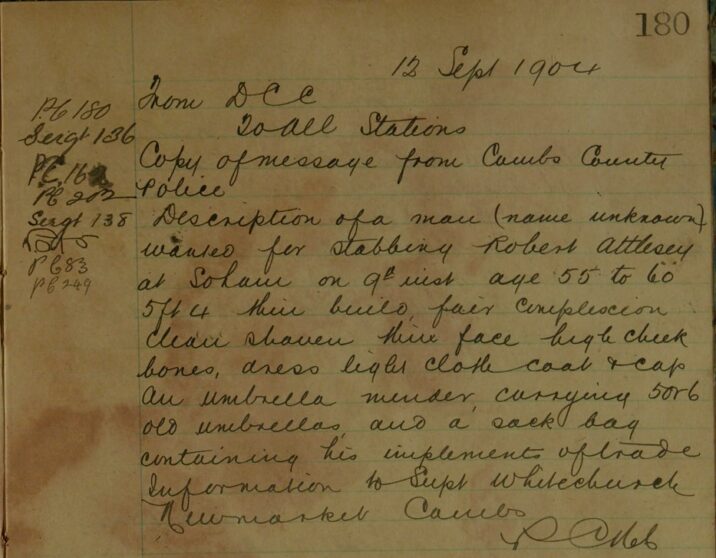 180
12 Sept 1904
From DCC
To All Stations
Copy of message from Cambs County
Police
Description of a man (name unknown)
wanted for stabbing Robert Attlesey
at Soham on 9th inst age 55 to 60
5ft 4 thin build, fair complexion
clean shaven thin face high cheek
bones, dress light cloth coat & cap
An umbrella mender, carrying 5 or 6
old umbrellas, and a sack bag
containing his implements of trade
Information to Supt Whitechurch
Newmarket Cambs
PC 180
Sergt 136
PC 16
PC 202
Sergt 138
PC 83
PC 249